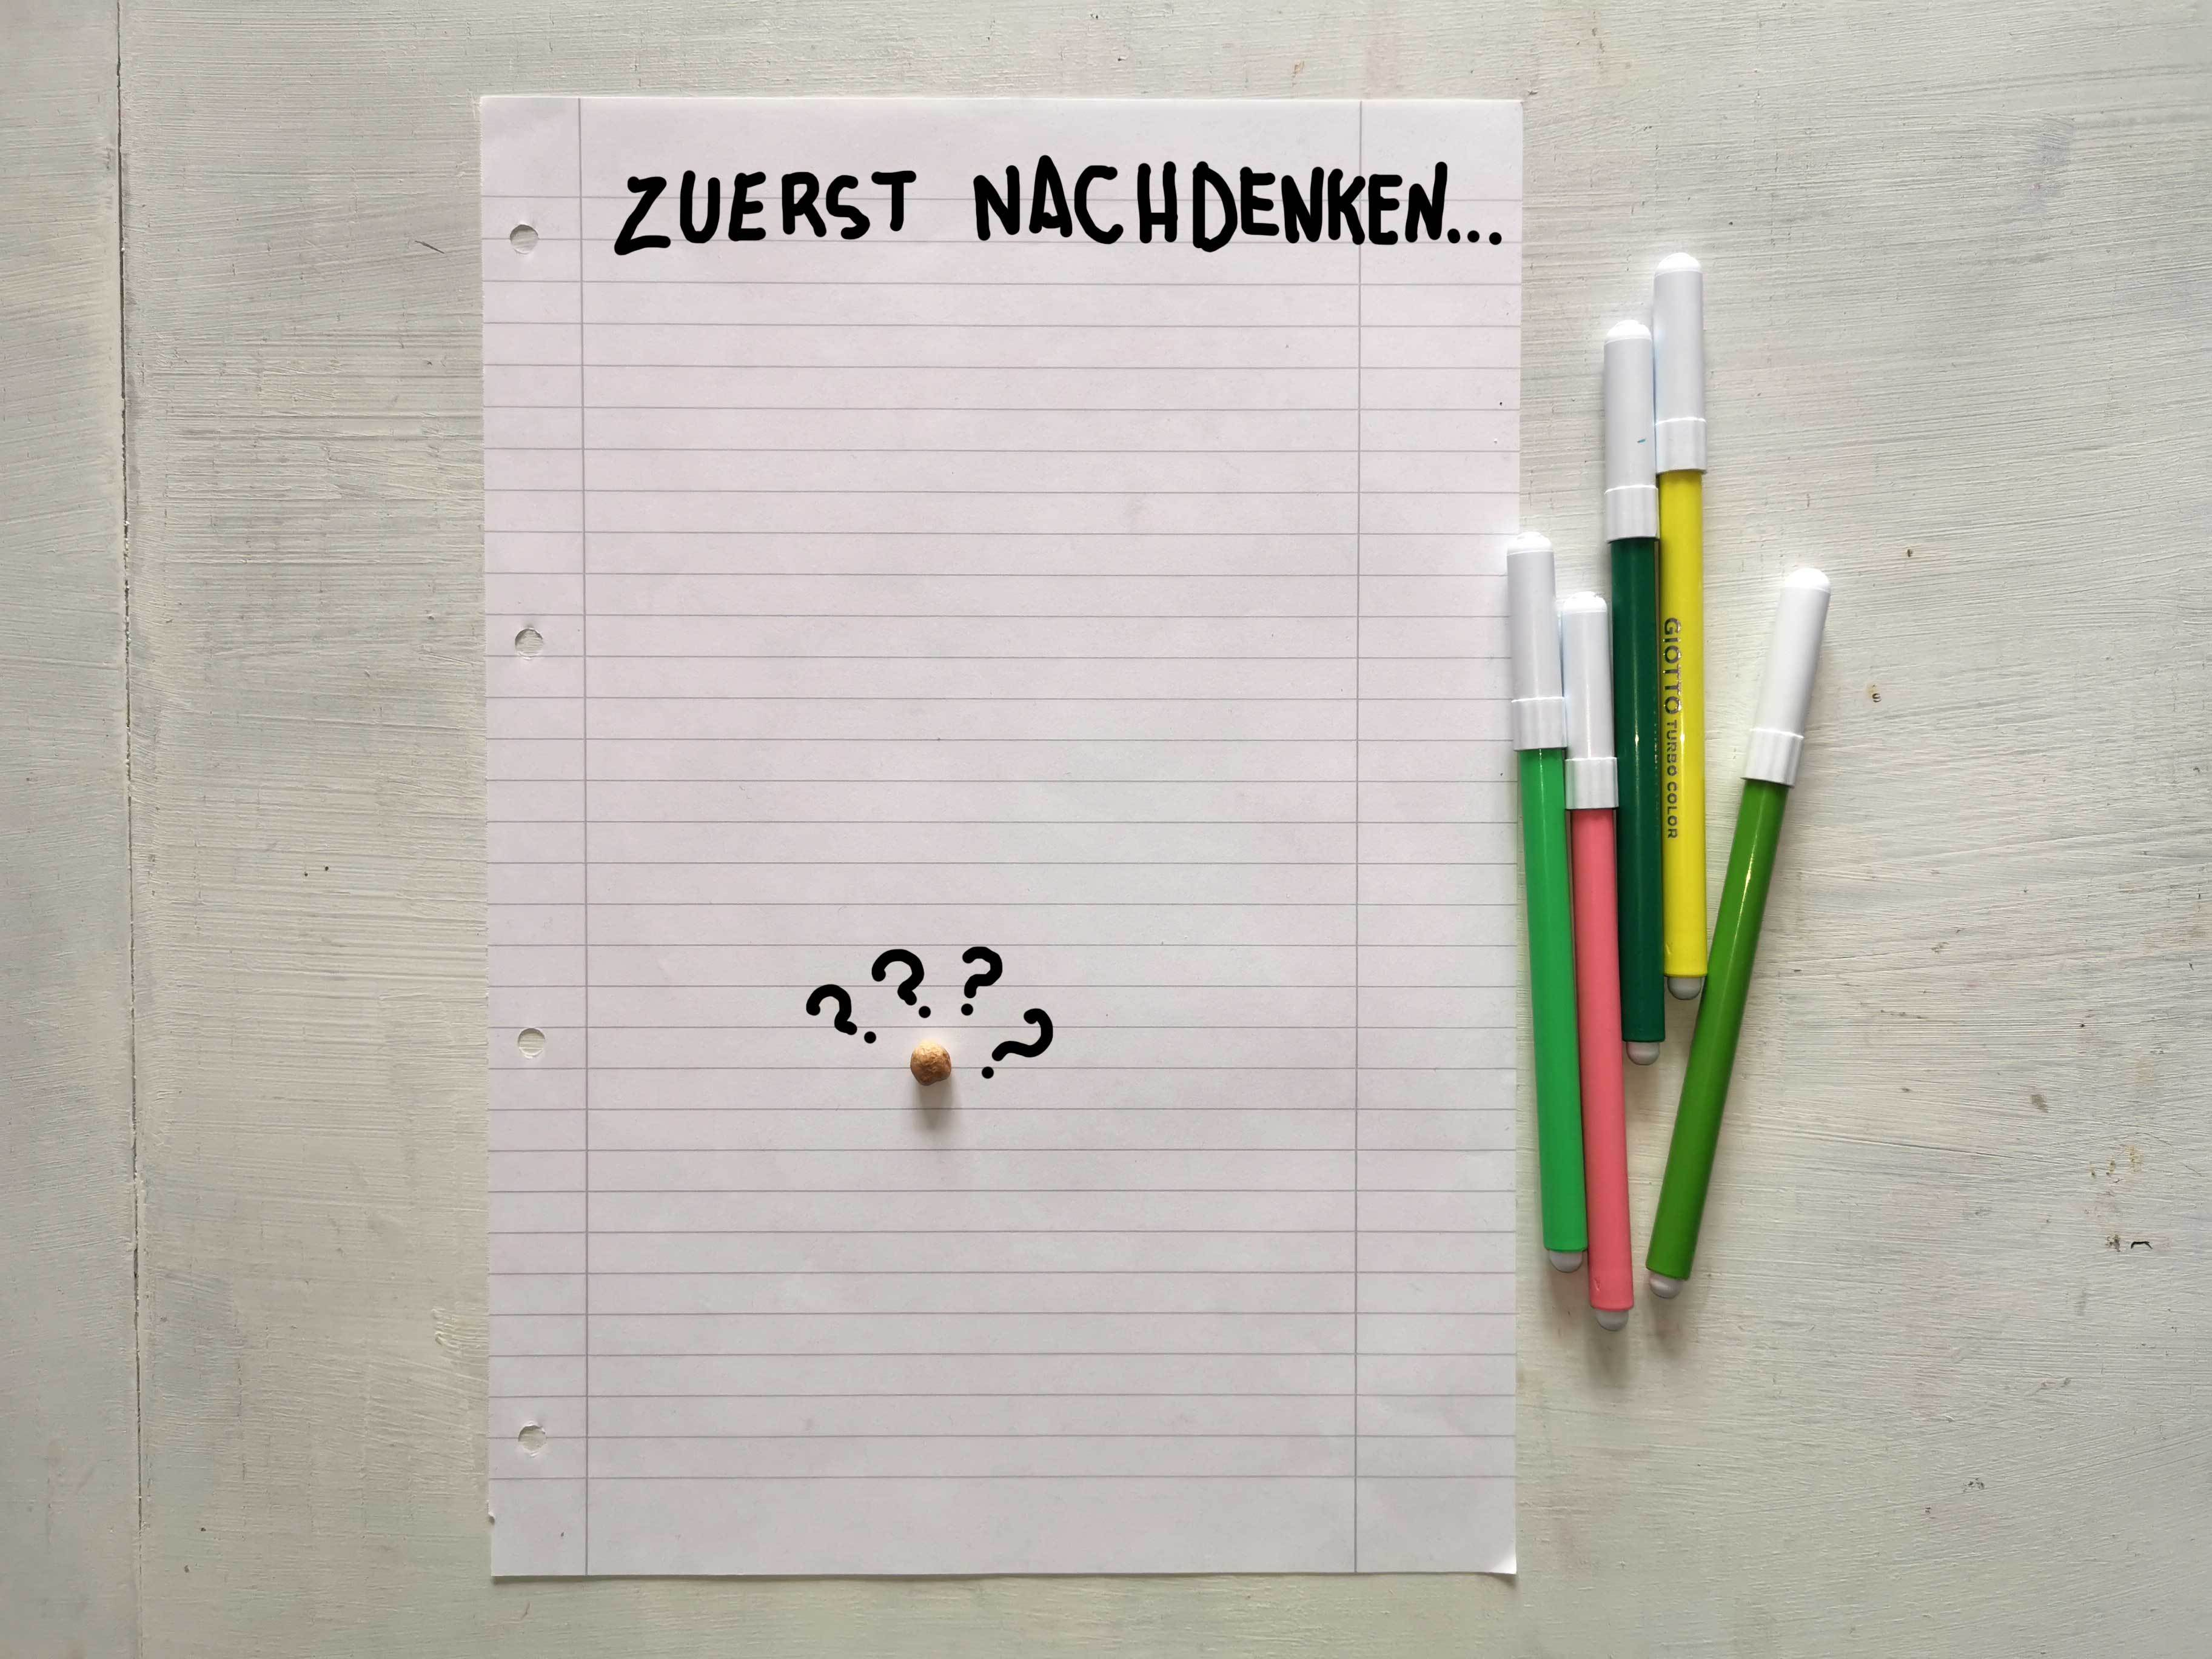 ZUERST NACHDENKEN...
? ? ? ?
GIOTTO TURBO COLOR